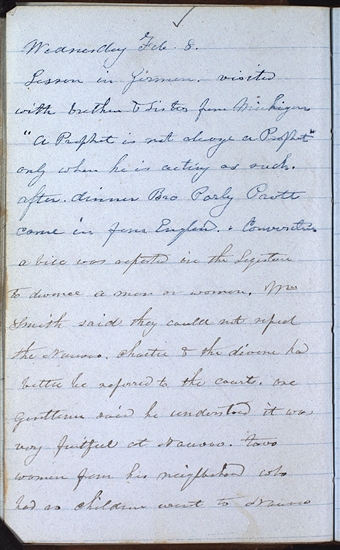 Wednesday Feb. 8.
Lesson in German. visited
with brethen & sister from Michigan
"a Prophet is not always a Prophet"
only when he is acting as such.
after dinner Bro Parly Pratt
came in from England. & Conversation
a bill was reported in the Legislature
to divorce a man or women. Mr
Smith said they could not repeal
the Nauvoo. Charter & the divorce had
better be referred to the court. one
gentleman said he understood it was
very fruitful at Nauvoo. two
women from his neighborhood who
had no children went to Nauvoo